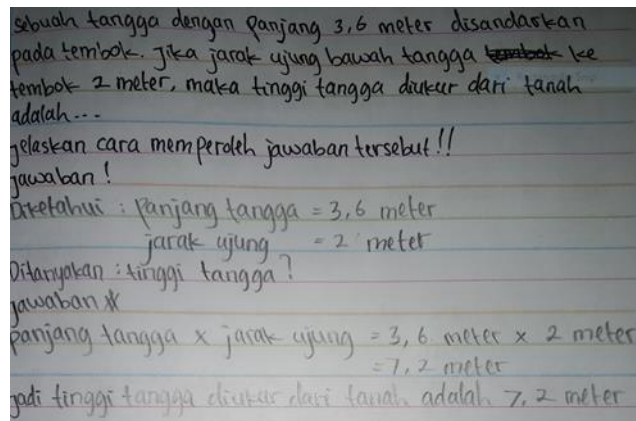 sebuah tangga dengan panjang 3,6 meter disandarkan
pada tembok. Jika jarak ujung bawah tangga tembok ke
tembok 2 meter, maka tinggi tangga diukur dari tanah
adalah...
jelaskan cara memperoleh jawaban tersebut!!
jawaban!
Diketahui : panjang tangga = 3,6 meter
jarak ujung = 2 meter
Ditanyakan : tinggi tangga?
jawaban *
panjang tangga x jarak ujung = 3,6 meter x 2 meter
= 7,2 meter
jadi tinggi tangga diukur dari tanah adalah 7,2 meter